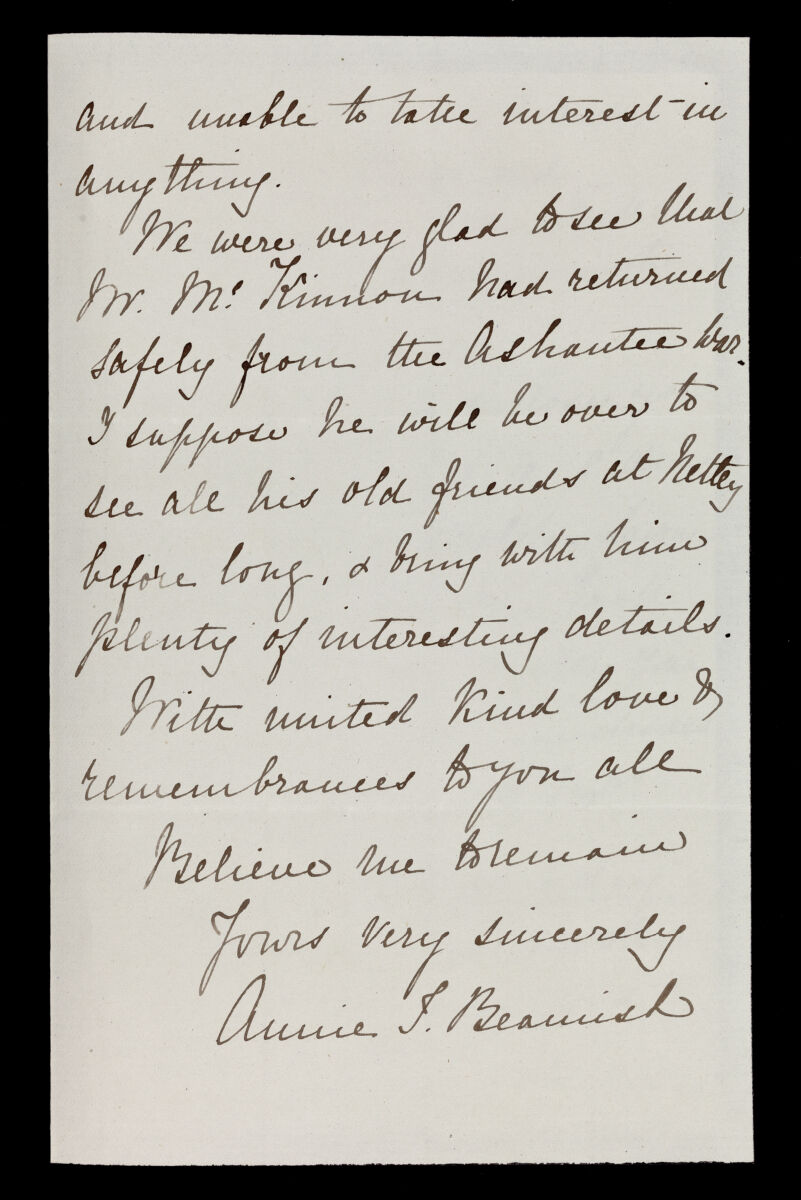 and unable to take interest in
anything.
We were very glad to see that
Mr. McKinnon had returned
safely from the Ashantee War.
I suppose he will be over to
see all his old friends at Netley
before long, & bring with him
plenty of interesting details.
With united kind love &
remembrances to you all
Believe me to remain
Yours very sincerely
Annie F. Beamish